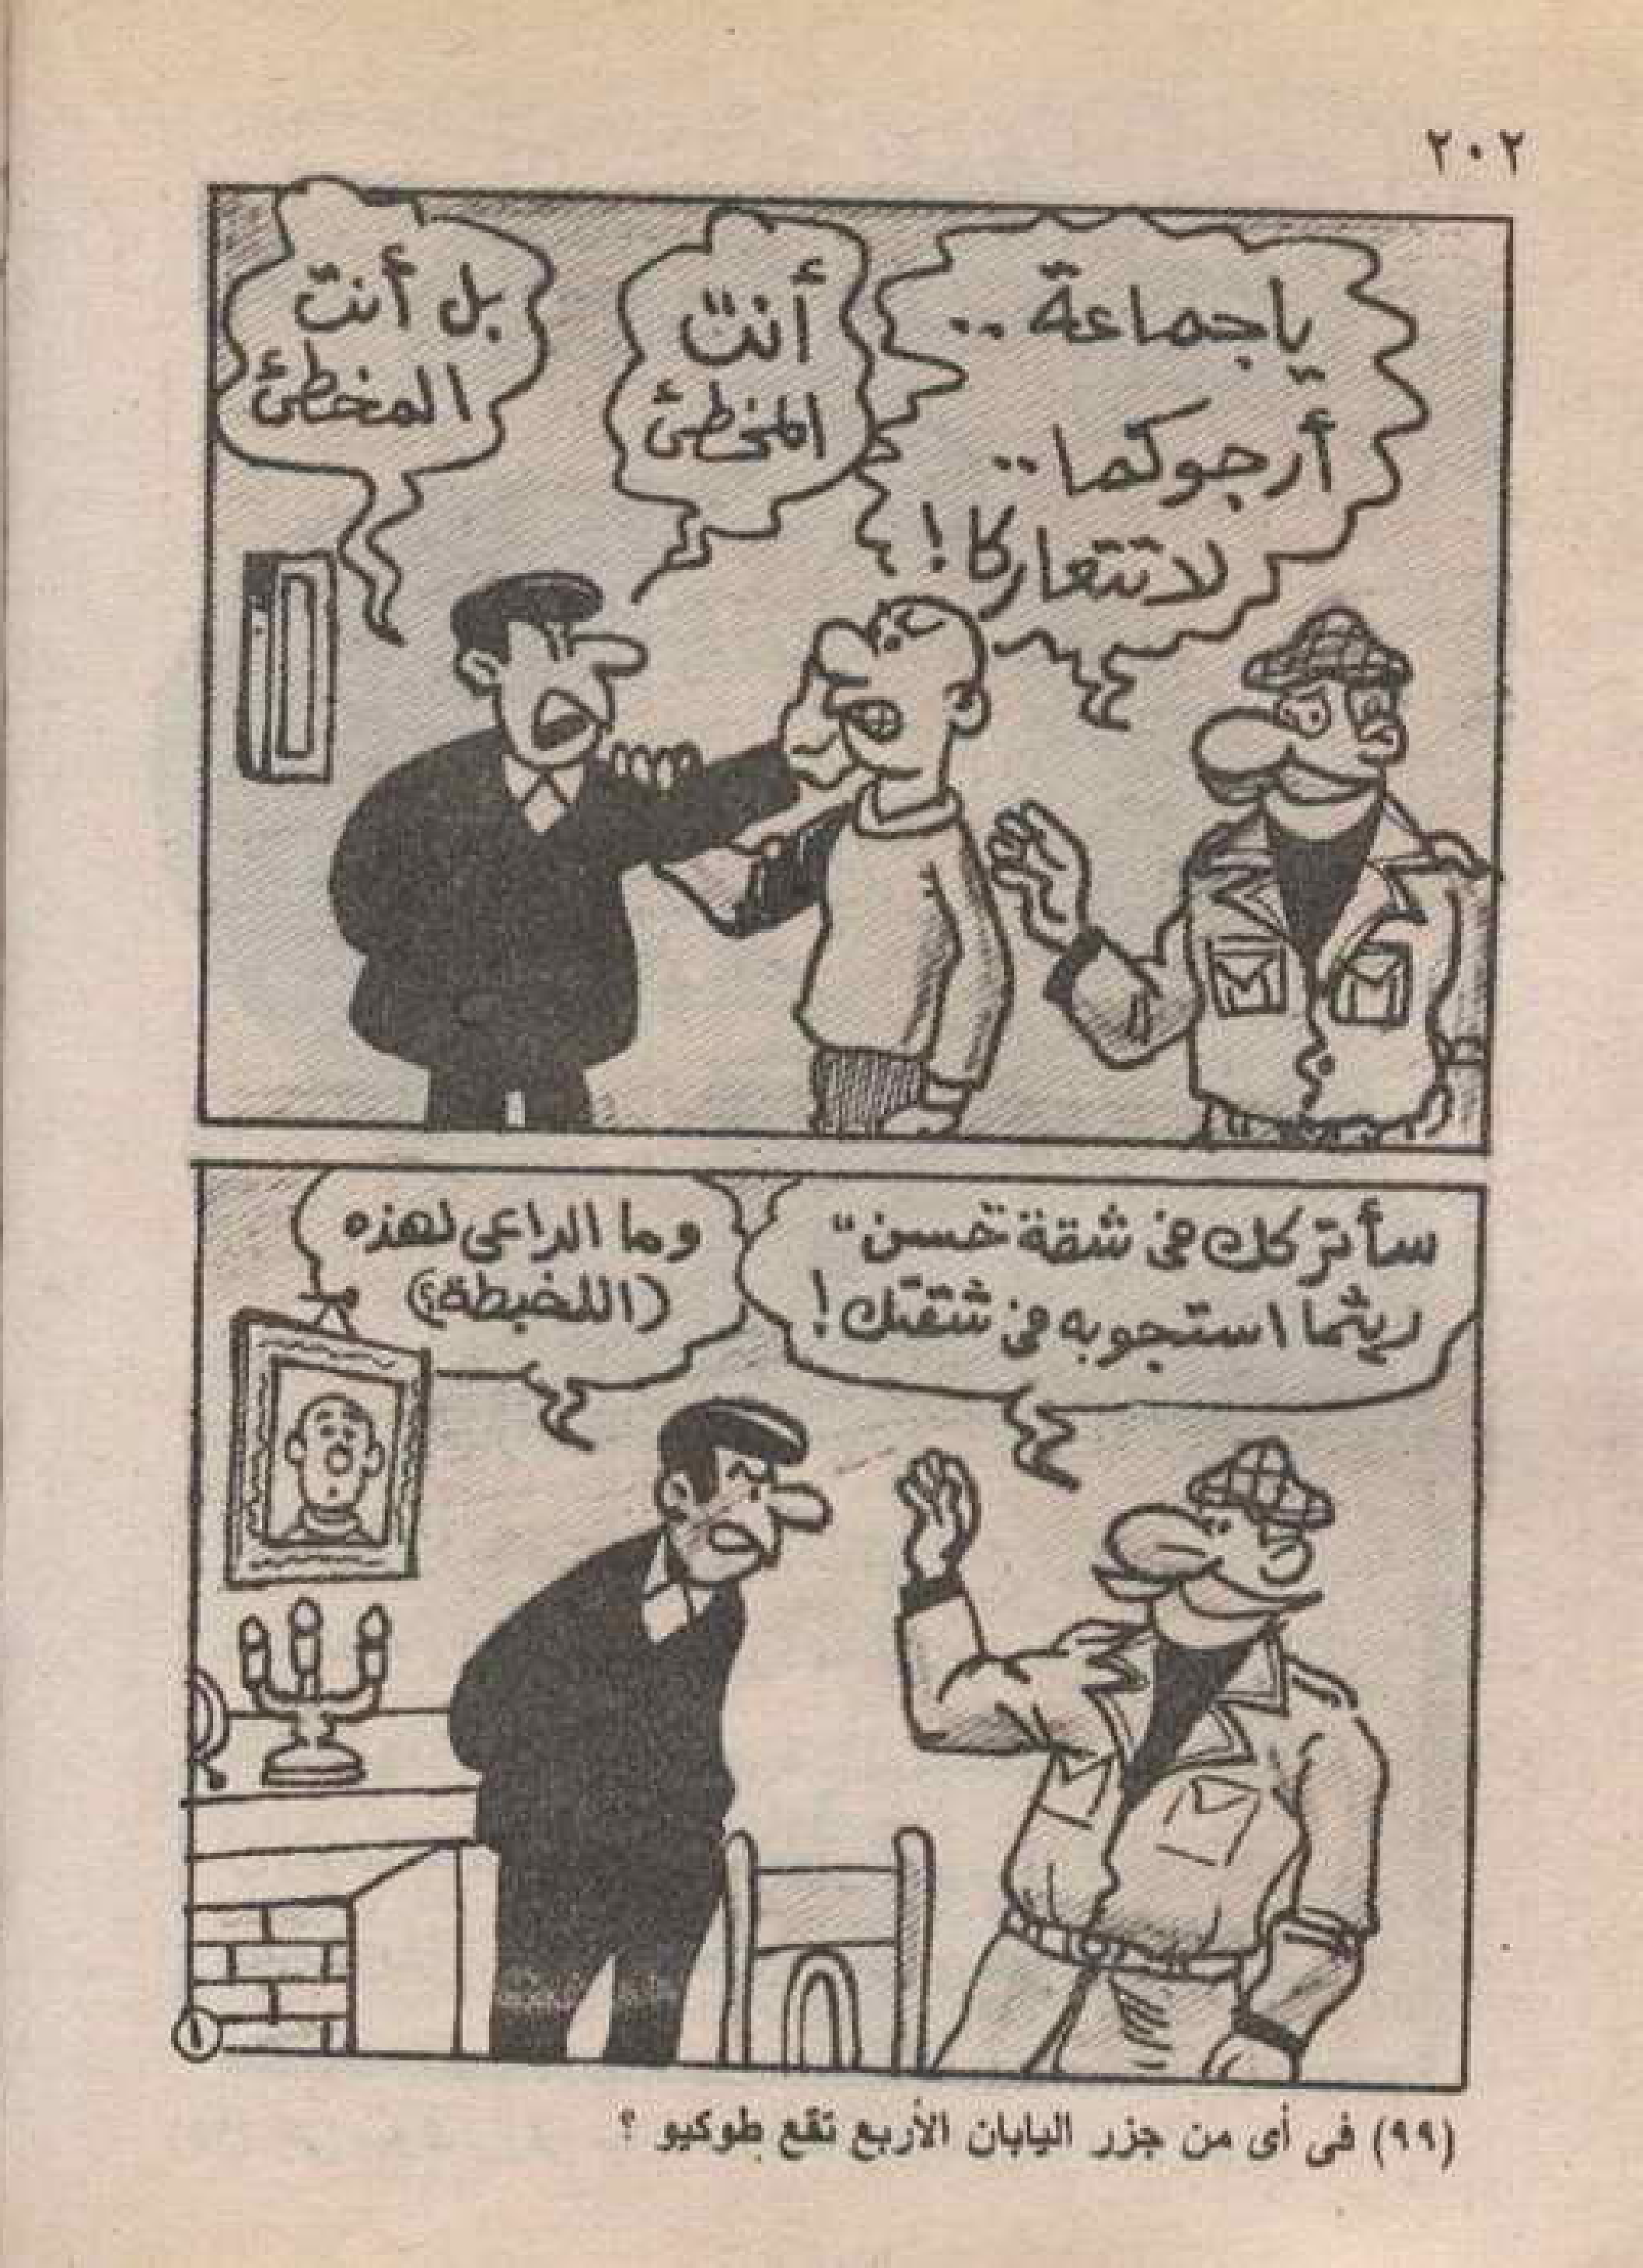 ٢٠٢
ياجماعة ..
أرجوكما ..
لاتتعاركا !
أنت
المخطئ
بل أنت
المخطئ
سأتركك فى شقة حسن ..
ريثما استجوبه فى شقتك !
وما الداعى لهذه
(اللخبطة؟)
١
(٩٩) فى أى من جزر اليابان الأربع تقع طوكيو ؟